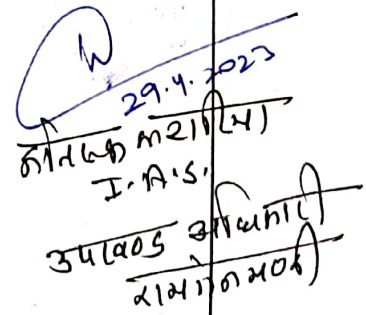 29.4.2023
कटारिया
I.A.S.
उपखण्ड अधिकारी
रामगंजमण्डी